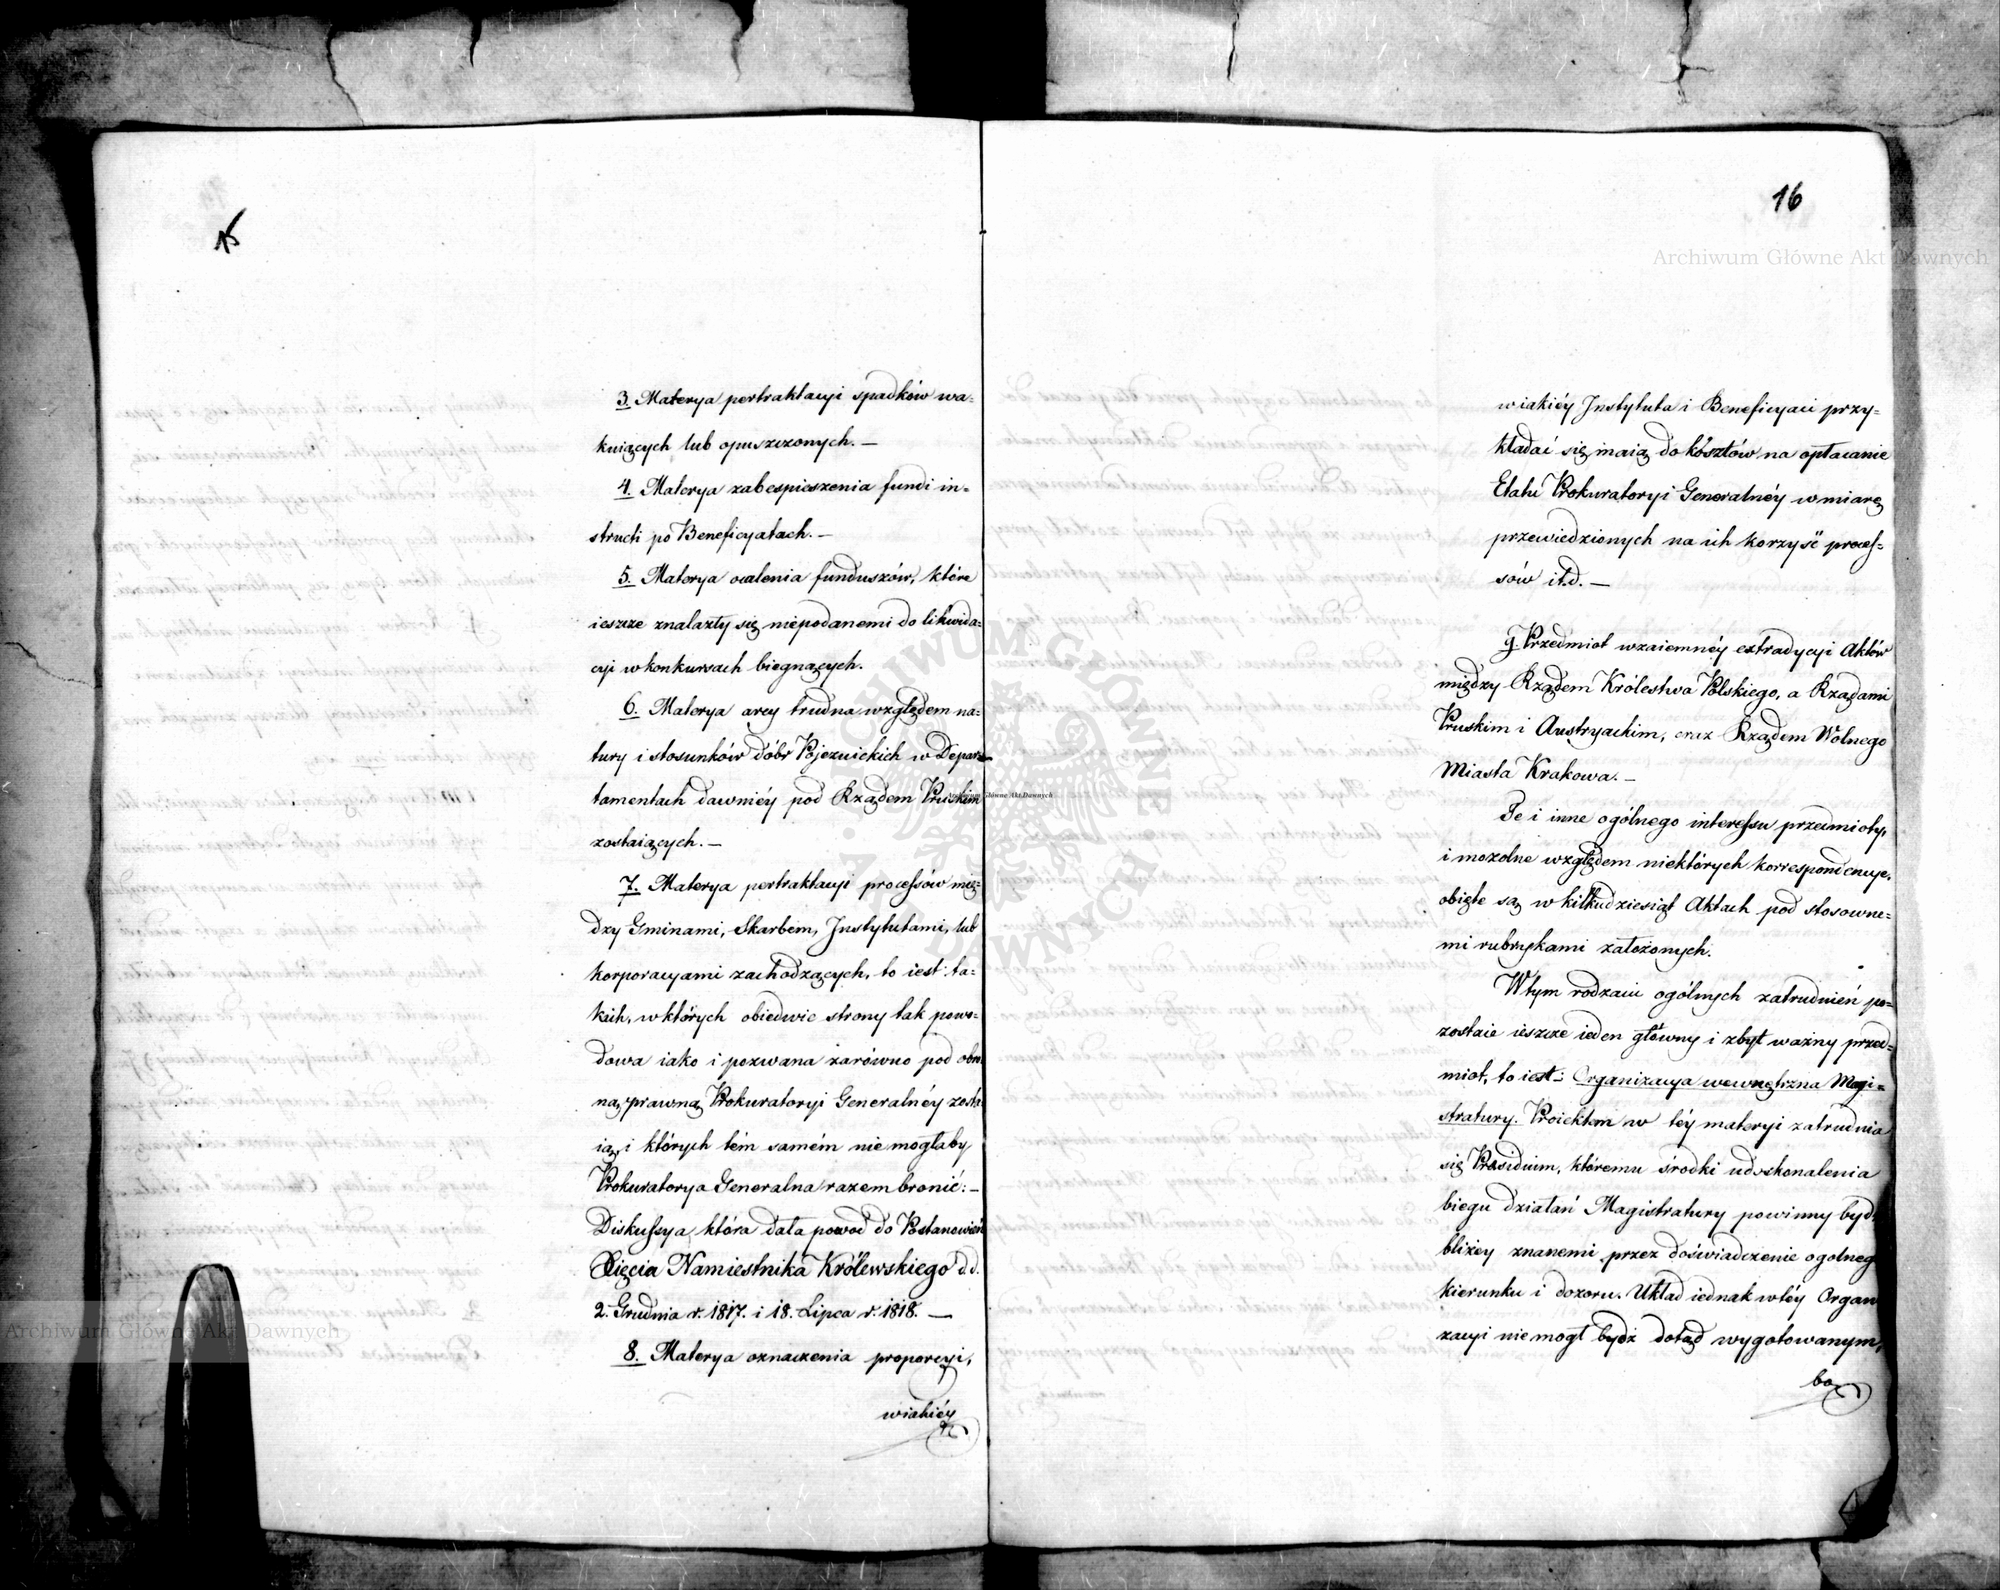 3. Materya pertraktacyi spadków wa=
kuiących lub opuszczonych. —
4. Materya zabespieszenia fundi in=
structi po Beneficyatach. —
5. Materya ocalenia funduszów, które
ieszcze znalazły się niepodanemi do likwida=
cyi w konkursach biegnących.
6. Materya arcy trudna względem na=
tury i stosunków dóbr Pojezuickich w Depar=
tamentach dawniéy pod Rządem Pruskim
zostaiących. —
7. Materya pertraktacyi processów mię=
dzy Gminami, Skarbem, Instytutami, lub
korporacyami zachodzących, to iest: ta=
kich, w których obiedwie strony tak powo=
dowa iako i pozwana zarówno pod obro
ną prawną Prokuratoryi Generalnéy zosta
ią, i których tém samém nie mogłaby
Prokuratorya Generalna razem bronić: —
Diskussya która dała powod do Postanowień
Xięcia Namiestnika Królewskiego d.d.
2. Grudnia r. 1817. i 18. Lipca r. 1818. —
8. Materya oznaczenia proporcyi,
wiakiéy
16
wiakiéy Instytuta i Beneficyaci przy=
kładać się maią do kosztów na opłacanie
Etatu Prokuratoryi Generalnéy w miarę
przewiedzionych na ich korzyść proces=
sów it.d. —
9. Przedmiot wzaiemnéy extradycyi Aktów
między Rządem Królestwa Polskiego, a Rządami
Pruskim i Austryackim, oraz Rządem Wolnego
Miasta Krakowa. —
Te i inne ogólnego interessu przedmioty,
i mozolne względem niektórych korrespondencye,
obięte są w kilkudziesiąt Aktach pod stosowne=
mi rubrykami założonych.
W tym rodzaiu ogólnych zatrudnień po=
zostaie ieszcze ieden główny i zbyt ważny przed=
miot, to iest: Organizacya wewnętrzna Magi=
stratury. Proiektem w téy materyi zatrudnia
się Prasidium, któremu środki udoskonalenia
biegu działań Magistratury powinny bydź
bliżey znanemi przez doświadczenie ogolneg
kierunku i dozoru. Układ iednak w téy Organ
zacyi nie mogł bydź dotąd wygotowanym,
bo
Archiwum Główne Akt Dawnych
Archiwum Główne Akt Dawnych
Archiwum Główne Akt Dawnych
ARCHIWUM GŁÓWNE AKT DAWNYCH